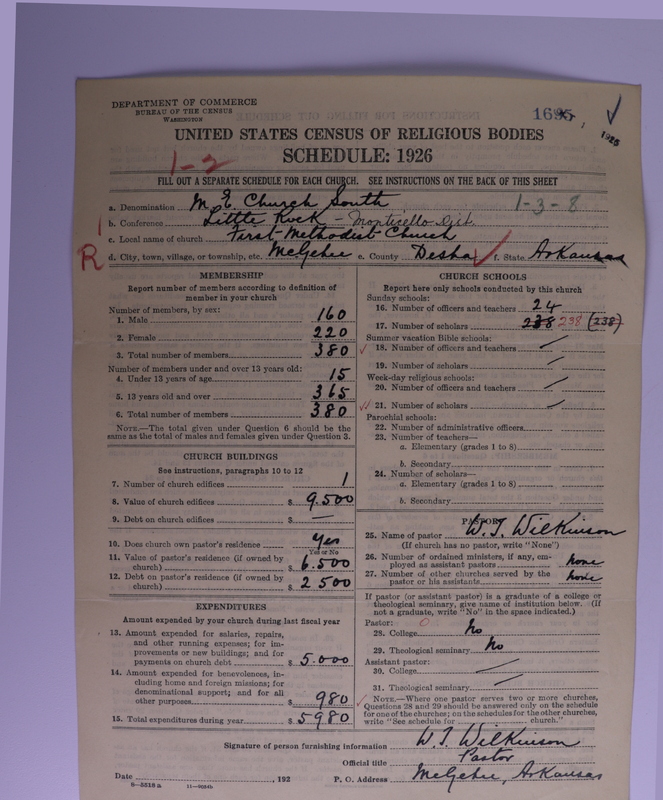 DEPARTMENT OF COMMERCE
BUREAU OF THE CENSUS
WASHINGTON
1695
1926
UNITED STATES CENSUS OF RELIGIOUS BODIES
SCHEDULE: 1926
1-2
FILL OUT A SEPARATE SCHEDULE FOR EACH CHURCH. SEE INSTRUCTIONS ON THE BACK OF THIS SHEET
a. Denomination M. E. Church South 1-3-8
b. Conference Little Rock - Monticello Dist.
c. Local name of church First Methodist Church
R
d. City, town, village, or township, etc. McGehee e. County Desha f. State Arkansas
MEMBERSHIP
Report number of members according to definition of
member in your church
Number of members, by sex:
1. Male 160
2. Female 220
3. Total number of members 380
Number of members under and over 13 years old:
4. Under 13 years of age 15
5. 13 years old and over 365
6. Total number of members 380
NOTE.—The total given under Question 6 should be the
same as the total of males and females given under Question 3.
CHURCH BUILDINGS
See instructions, paragraphs 10 to 12
7. Number of church edifices 1
8. Value of church edifices $ 9.500
9. Debt on church edifices $ —
10. Does church own pastor's residence Yes
Yes or No
11. Value of pastor's residence (if owned by
church) $ 6.500
12. Debt on pastor's residence (if owned by
church) $ 2500
EXPENDITURES
Amount expended by your church during last fiscal year
13. Amount expended for salaries, repairs,
and other running expenses; for im-
provements or new buildings; and for
payments on church debt $ 5.000
14. Amount expended for benevolences, in-
cluding home and foreign missions; for
denominational support; and for all
other purposes $ 980
15. Total expenditures during year $ 5980
CHURCH SCHOOLS
Report here only schools conducted by this church
Sunday schools:
16. Number of officers and teachers 24
17. Number of scholars 238 238 (238)
Summer vacation Bible schools:
18. Number of officers and teachers
19. Number of scholars
Week-day religious schools:
20. Number of officers and teachers
21. Number of scholars
Parochial schools:
22. Number of administrative officers
23. Number of teachers—
a. Elementary (grades 1 to 8)
b. Secondary
24. Number of scholars—
a. Elementary (grades 1 to 8)
b. Secondary
PASTOR
25. Name of pastor W. T. Wilkinson
(If church has no pastor, write "None")
26. Number of ordained ministers, if any, em-
ployed as assistant pastors none
27. Number of other churches served by the
pastor or his assistants none
If pastor (or assistant pastor) is a graduate of a college or
theological seminary, give name of institution below. (If
not a graduate, write "No" in the space indicated.)
Pastor: 0
28. College No
29. Theological seminary No
Assistant pastor:
30. College
31. Theological seminary
NOTE.—Where one pastor serves two or more churches,
Questions 28 and 29 should be answered only on the schedule
for one of the churches; on the schedules for the other churches,
write "See schedule for church."
Signature of person furnishing information W. T. Wilkinson
Official title Pastor
Date , 192 P. O. Address McGehee, Arkansas
8-5518a